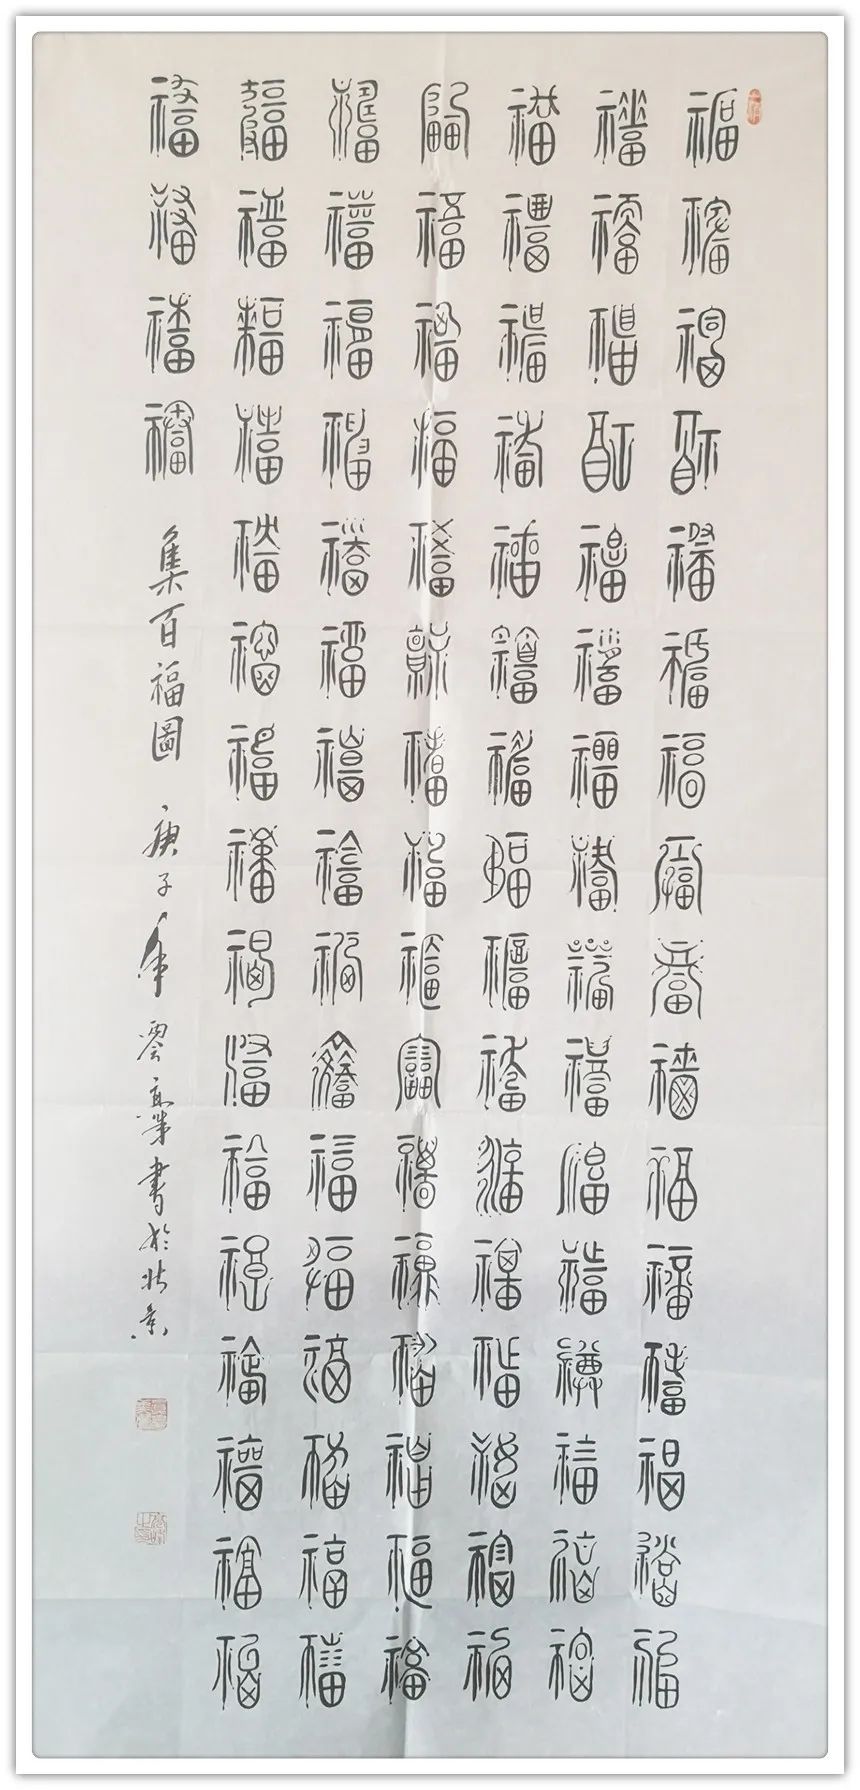 福福福福福福福福福福福福福福福福
福福福福福福福福福福福福福福福福
福福福福福福福福福福福福福福福福
福福福福福福福福福福福福福福福福
福福福福福福福福福福福福福福福福
福福福福福福福福福福福福福福福福
福福福福 集百福圖 庚子年 雲 書於北京